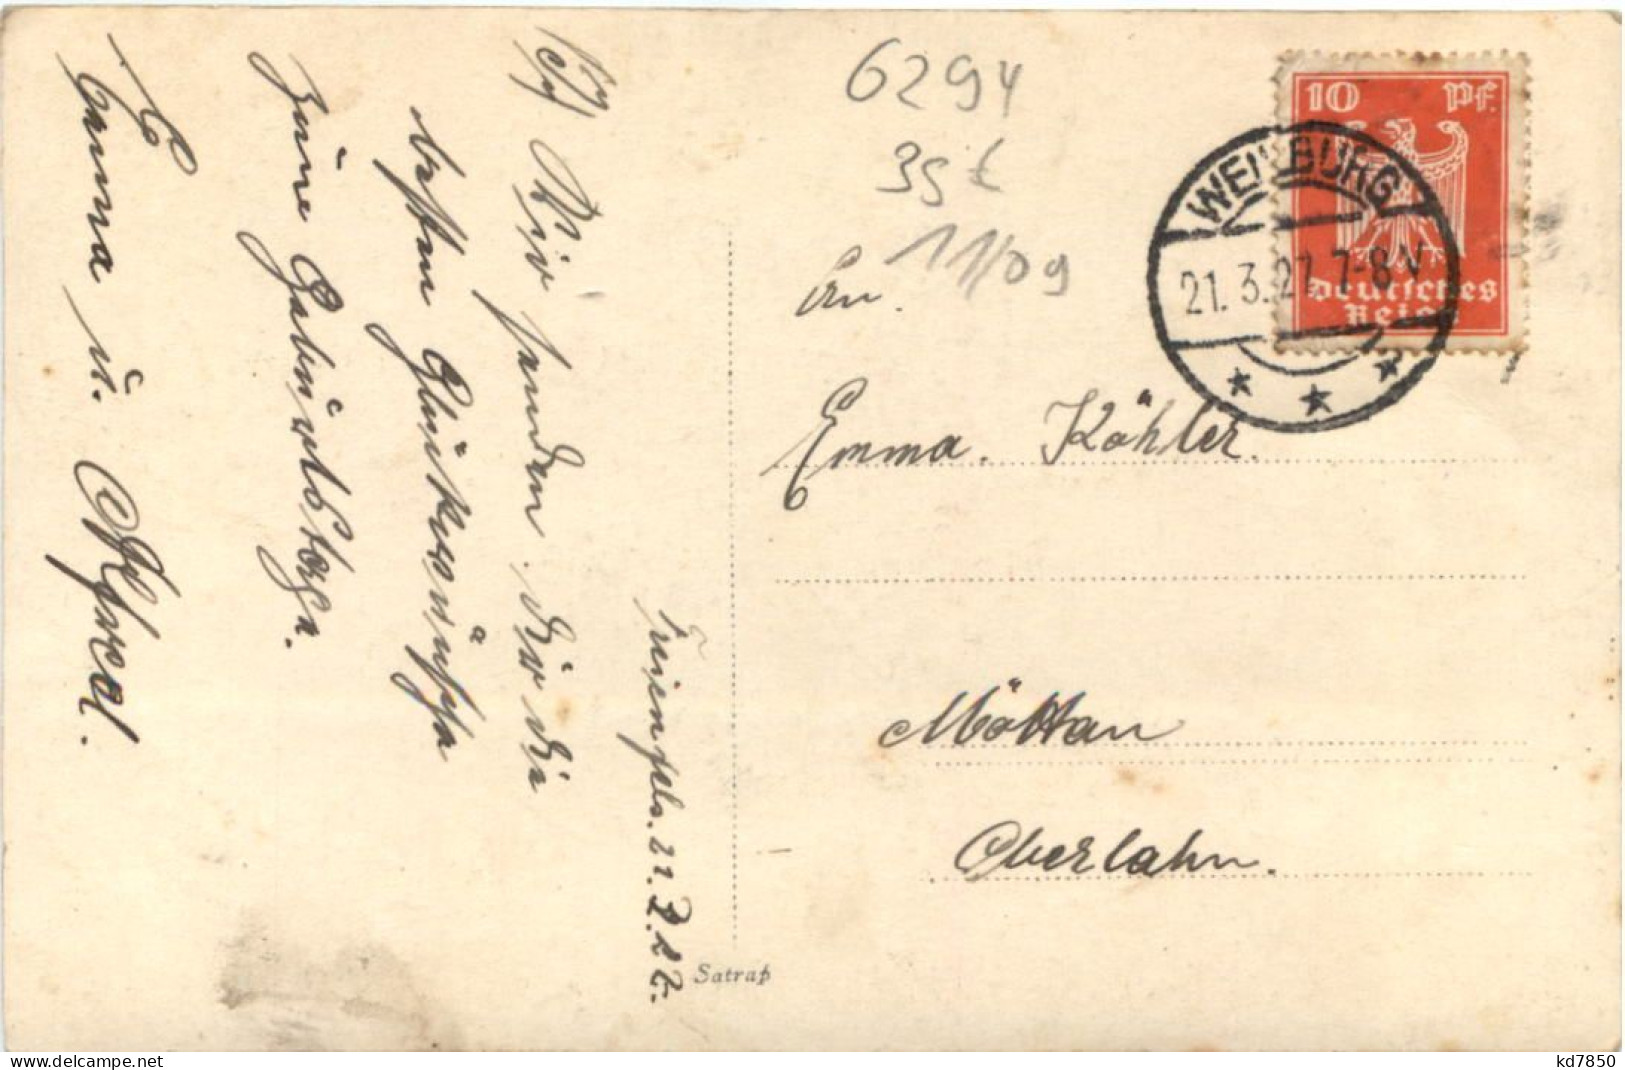 6294
35 €
11/09
An.
Emma. Köhler.
Möttau
Oberlahn.
10 Pf.
Deutsches
Reich
WEILBURG
21. 3. 27. 7-8 V
* * *
Freienfels. 21.3.27.
Wir senden Dir die
besten Glückwünsche
zum Geburtstage.
Emma u.
Satrap
www.delcampe.net
kd7850